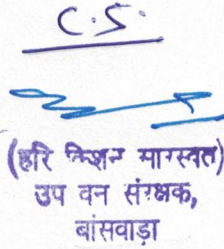 C.S.
(हरि किशन सारस्वत)
उप वन संरक्षक,
बांसवाड़ा